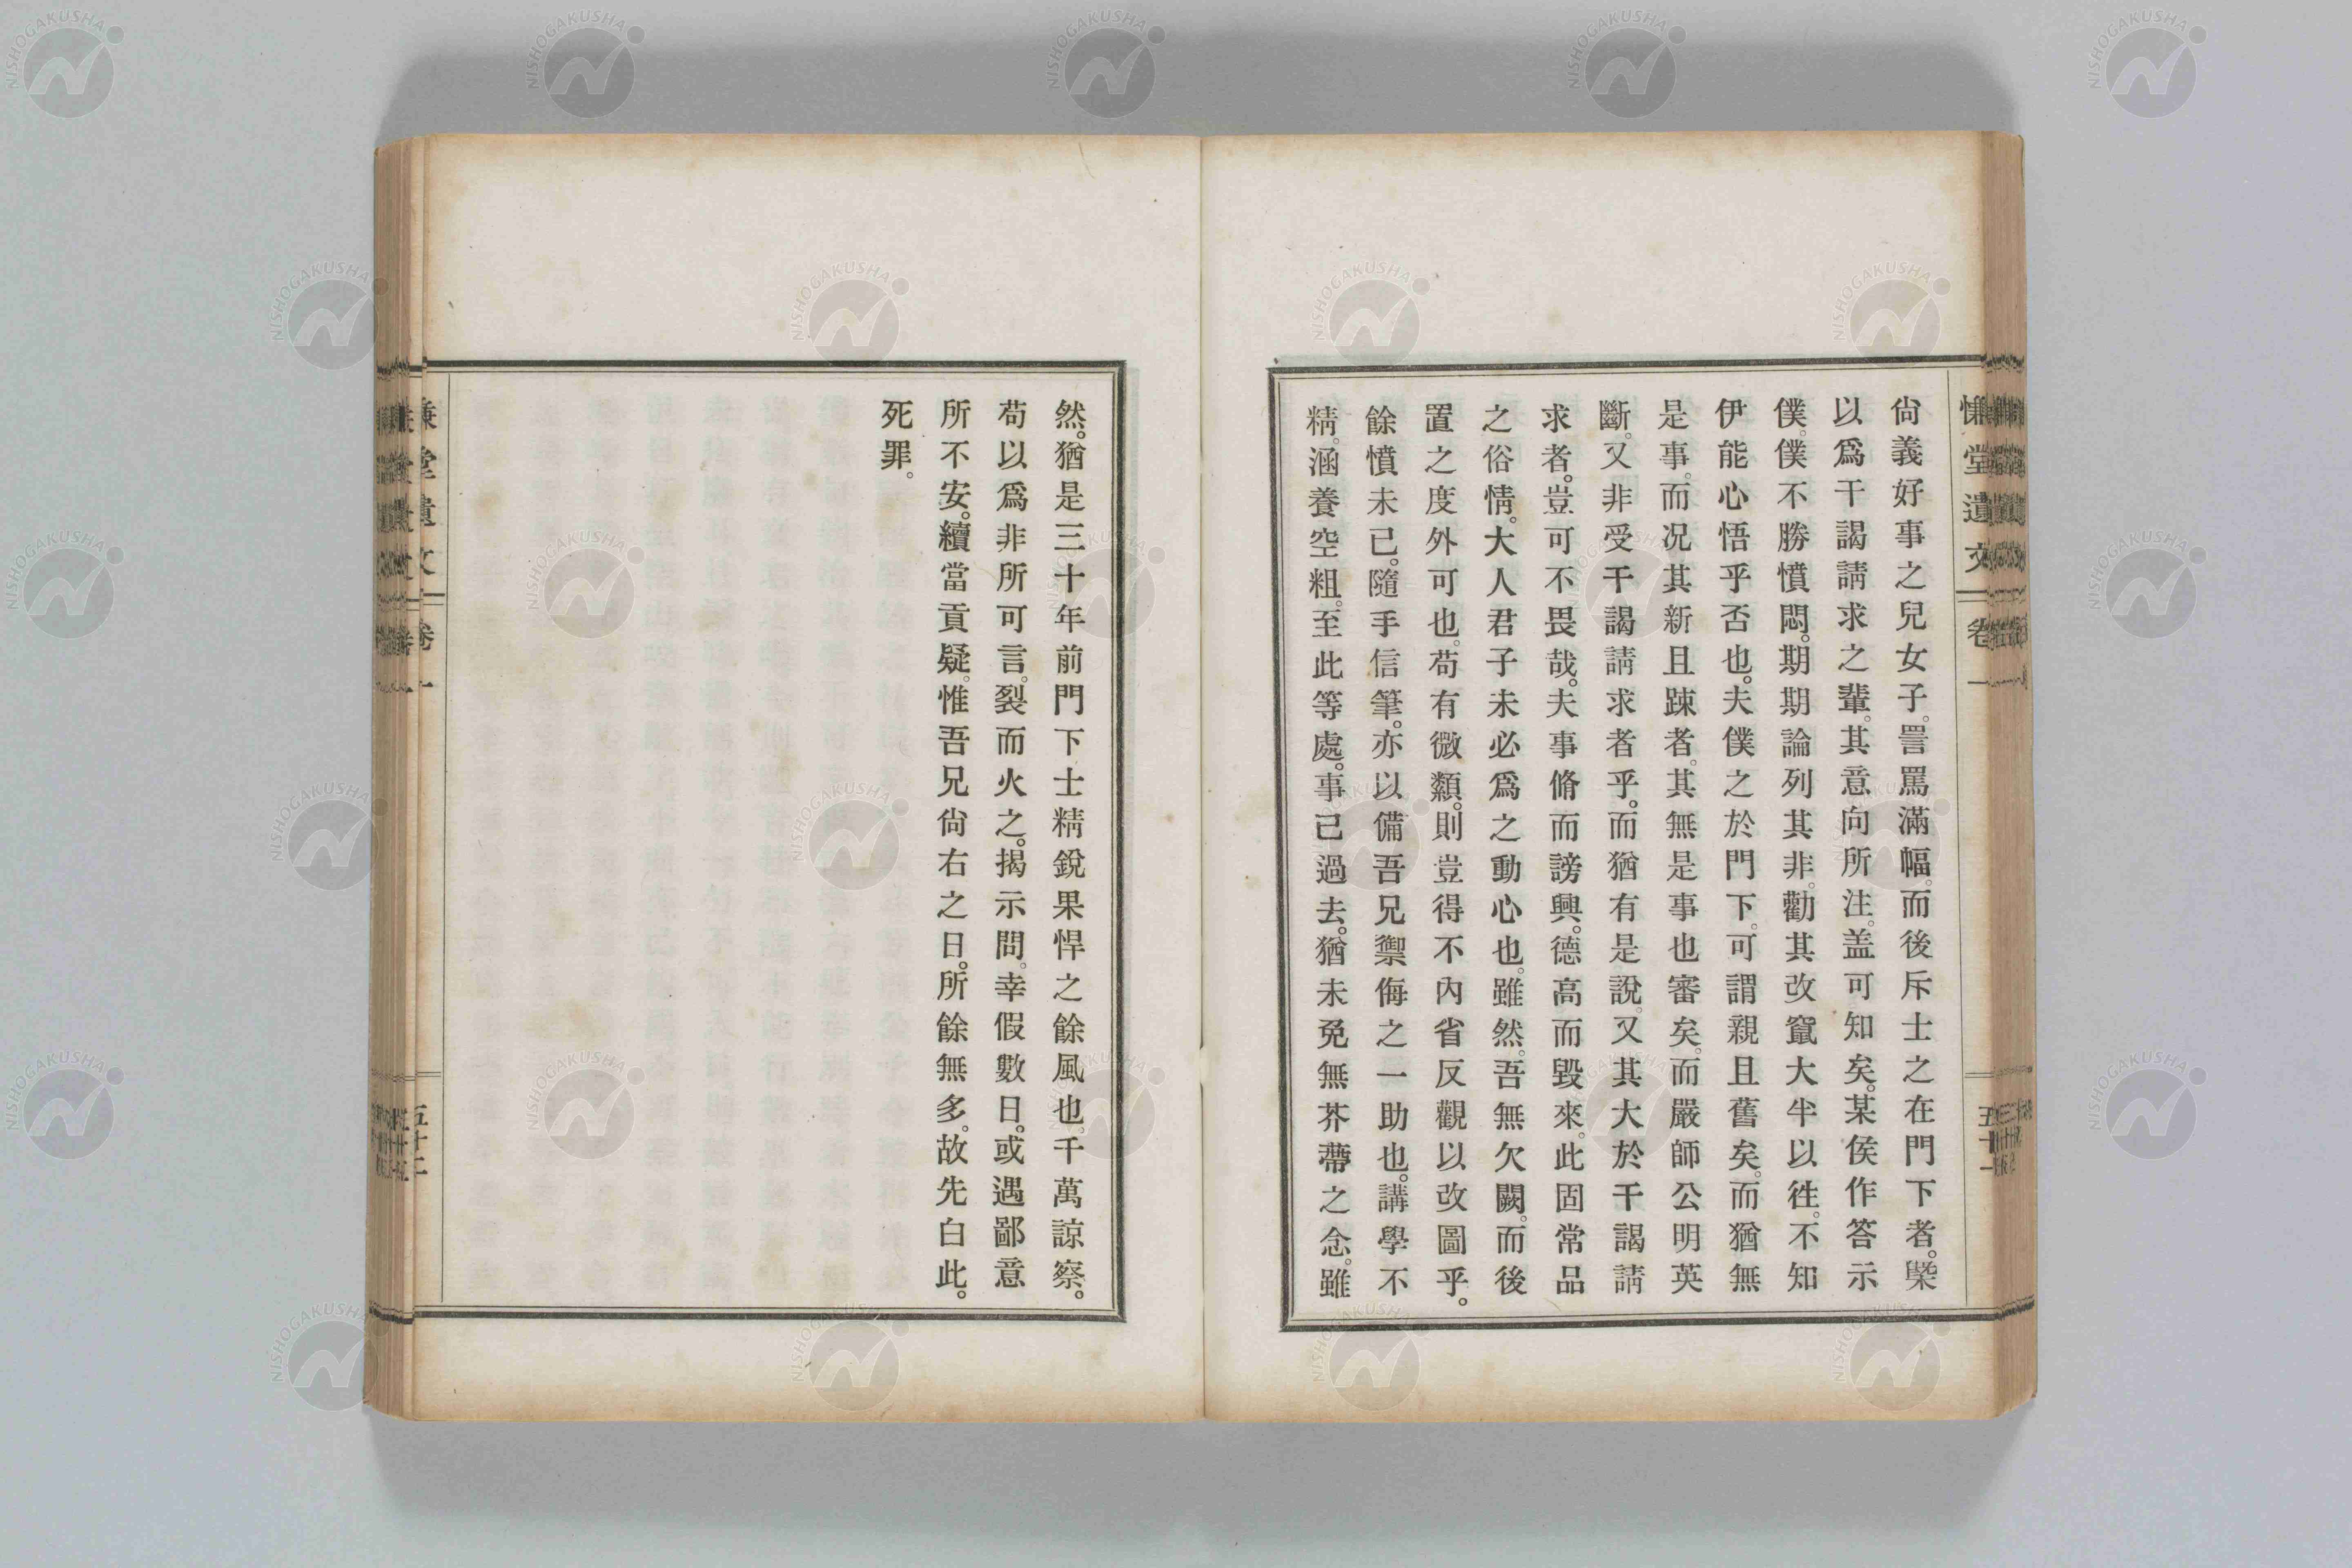 慊堂遺文 卷一 五十一
尙義好事之兒女子。詈罵滿幅。而後斥士之在門下者。槩
以爲干謁請求之輩。其意向所注。盖可知矣。某侯作答示
僕。僕不勝憤悶。期期論列其非。勸其改竄大半以徃。不知
伊能心悟乎否也。夫僕之於門下。可謂親且舊矣。而猶無
是事。而况其新且踈者。其無是事也審矣。而嚴師公明英
斷。又非受干謁請求者乎。而猶有是說。又其大於干謁請
求者。豈可不畏哉。夫事脩而謗興。德高而毀來。此固常品
之俗情。大人君子未必爲之動心也。雖然。吾無欠闕。而後
置之度外可也。苟有微纇。則豈得不內省反觀以改圖乎。
餘憤未已。隨手信筆。亦以備吾兄禦侮之一助也。講學不
精。涵養空粗。至此等處。事已過去。猶未免無芥蔕之念。雖
然。猶是三十年前門下士精銳果悍之餘風也。千萬諒察。
苟以爲非所可言。裂而火之。揭示問。幸假數日。或遇鄙意
所不安。續當貢疑。惟吾兄尙右之日。所餘無多。故先白此。
死罪。
慊堂遺文 卷一 五十二
NISHOGAKUSHA